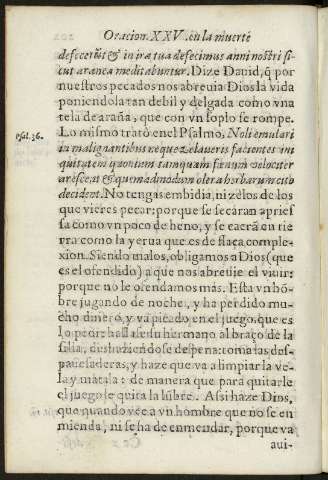 Oracion. XXV. en la muerte
defecerũt & in ira tua defecimus anni nostri si-
cut aranea meditabuntur. Dize Dauid, q̃ por
nuestros pecados nos abreuia Dios la vida
poniendola tan debil y delgada como vna
tela de araña, que con vn soplo se rompe.
Lo mismo tratò en el Psalmo. Noli emulari
Psal. 36.
in malignantibus neque zelaueris facientes ini
quitatem quonium tamquam fœnum velociter
arescent & quemadmodum olera herbarum cito
decident. No tengas embidia, ni zelos de los
que vieres pecar; porque se secaràn apries
sa como vn poco de heno, y se caerã en tie
rra como la yerua que es de flaca comple-
xion. Siendo malos, obligamos a Dios (que
es el ofendido) a que nos abreuie el viuir;
porque no le ofendamos mas. Està vn hõ-
bre jugando de noche, y ha perdido mu-
cho dinero, y và picado en el juego, que es
lo peor: hallase su hermano al braço de la
silla, deshaziendose de pena: toma las des-
pauesaderas, y haze que va a limpiar la ve-
la y matala: de manera que para quitarle
el juego le quita la lũbre. Assi haze Dios,
que quando vee a vn hombre que no se en
mienda, ni se ha de enmendar, porque va
aui-